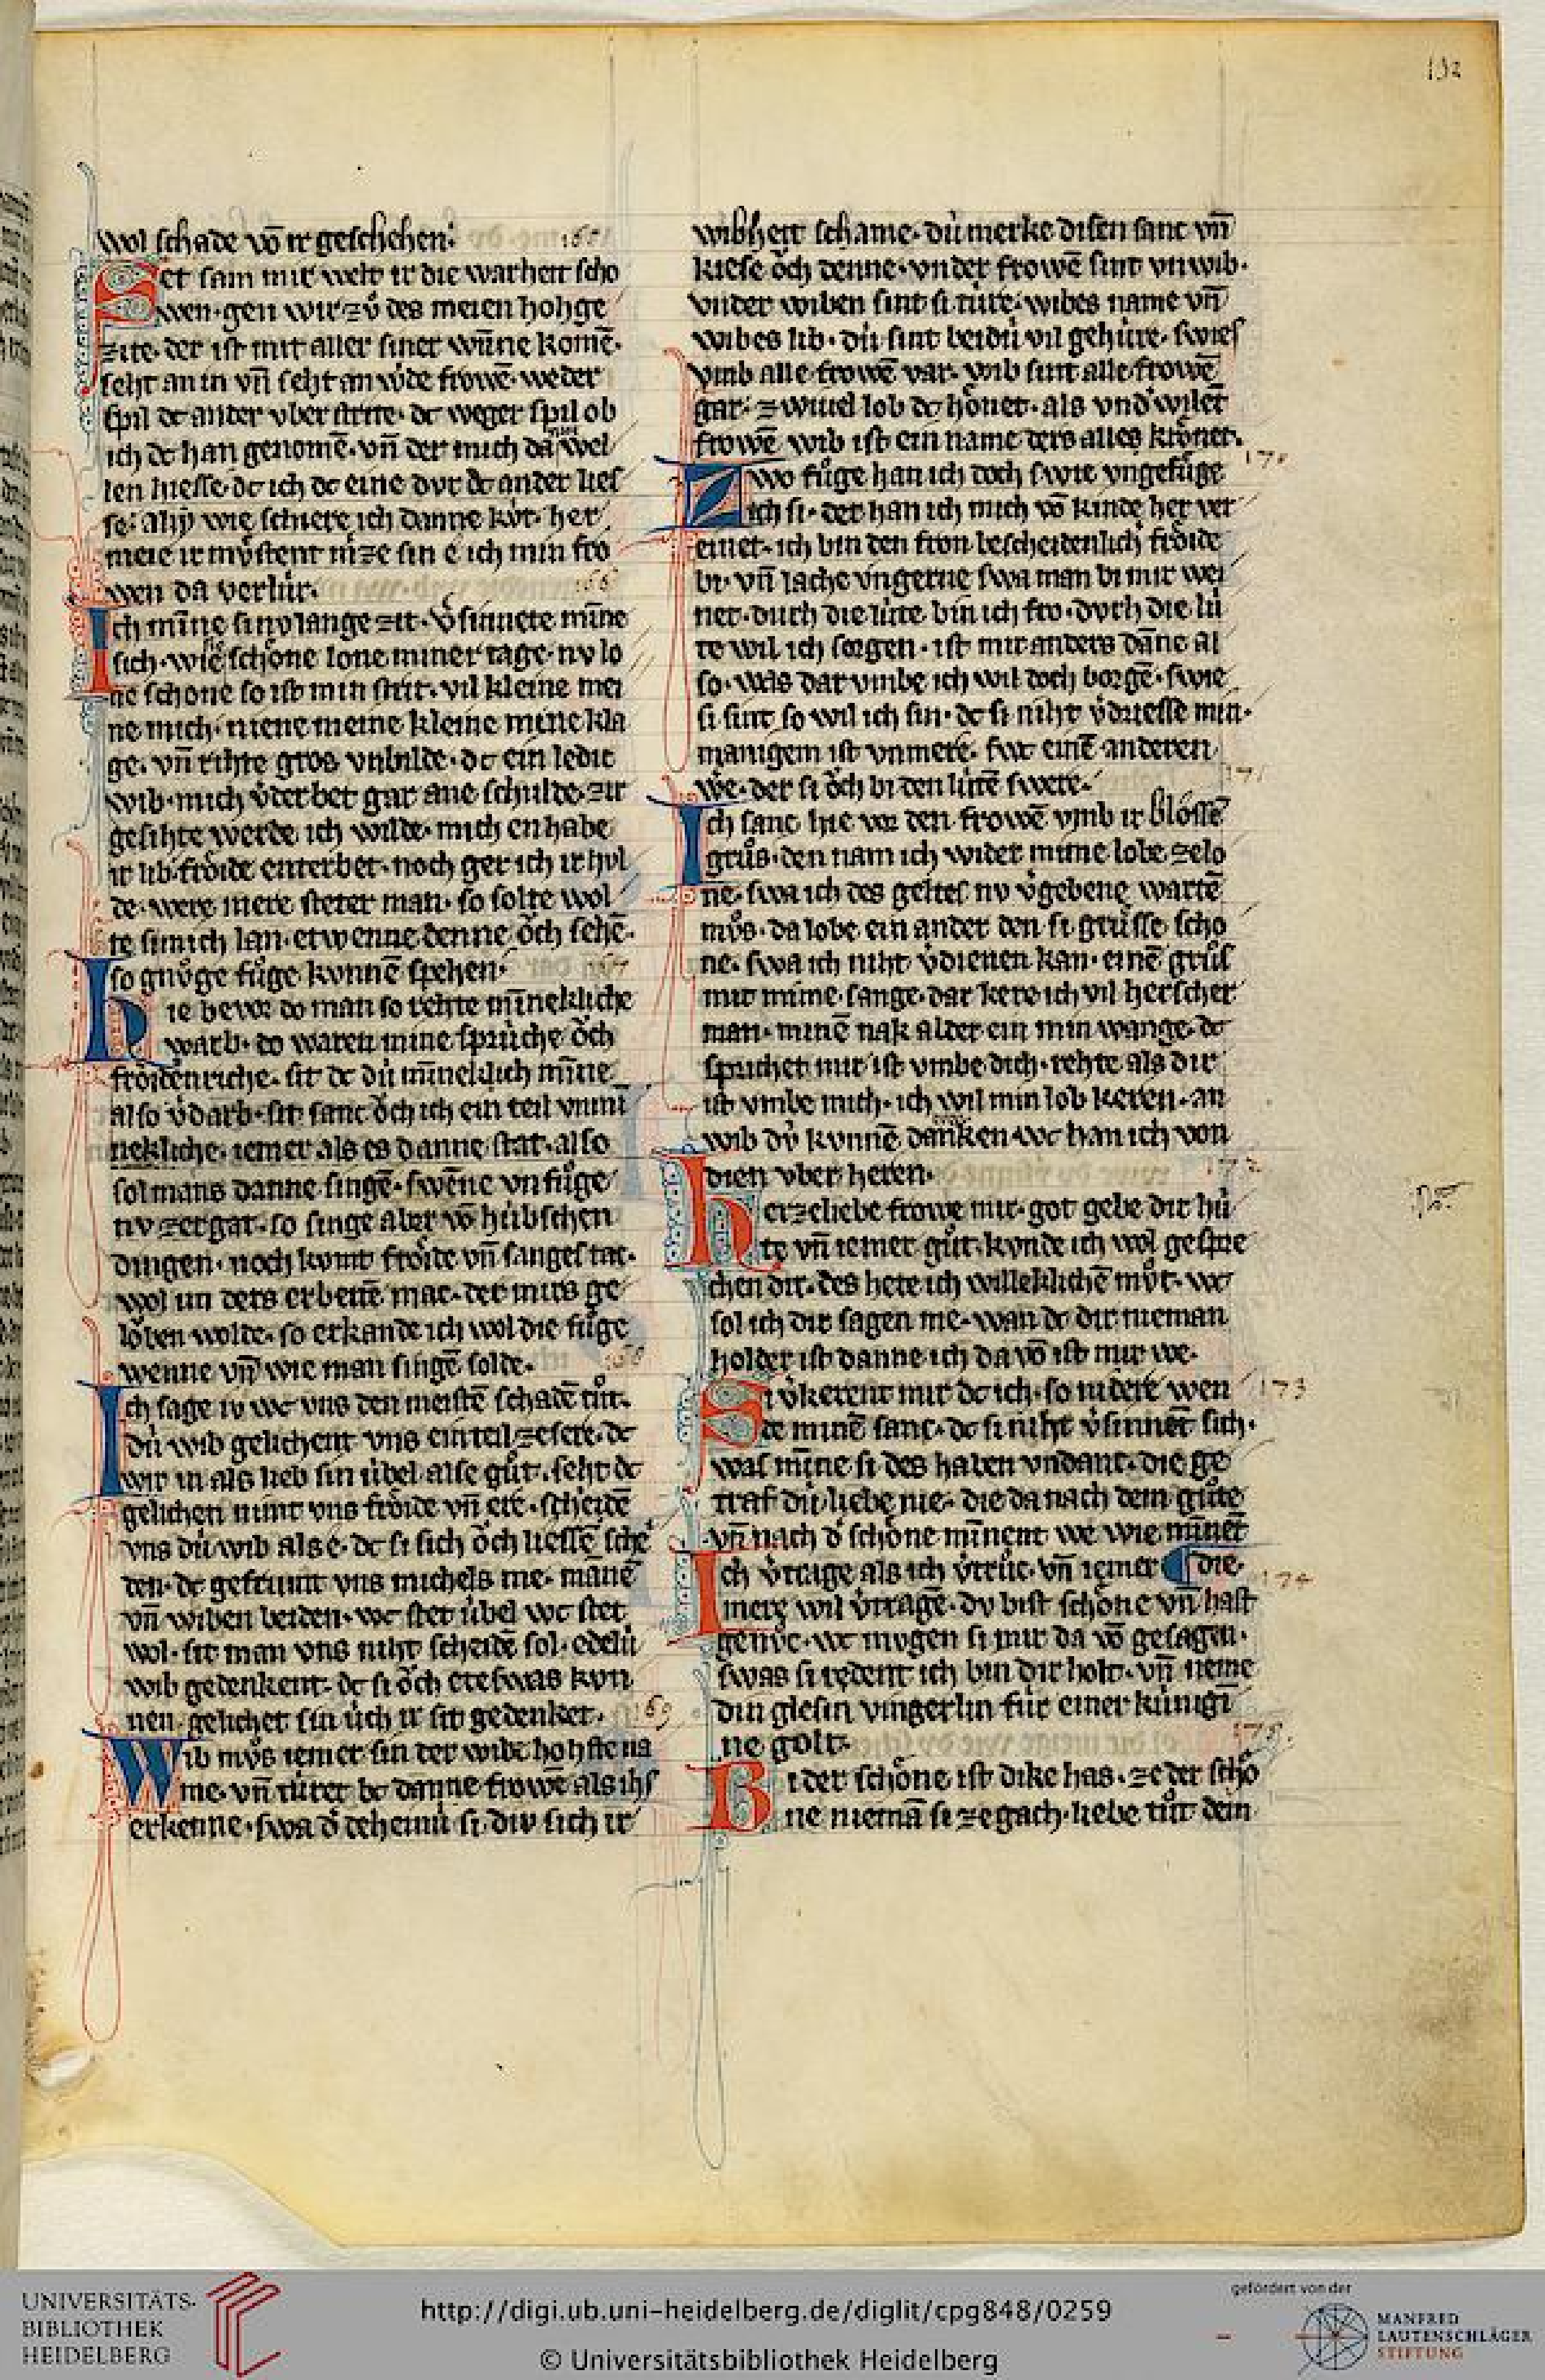 132
wol schade vō ir geschehen. 165
Set sam mir welt ir die warheit scho
wen. gen wir zů des meien hohge
zite. der ist mit aller siner wūne komē.
seht an in vn̄ seht an w̾de frowē. weder
spil dc ander vber strite. dc weger spil ob
ich dc han genomē. vn̄ der mich da weln
len hiesse. dc ich dc eine dvr dc ander lies
se. ahy wie schiere ich danne kv̊r. her
meie ir mv̊stent mze sin e ich min fro
wen da verlúr. 166
Ich mīne sinv lange zit. v̾sinnete mīne
sich. wie schône lone miner tage. nv lo
ne schone so ist min strit. vil kleine mei
ne mich. niene meine kleine mine kla
ge. vn̄ rihte gros vnbilde. dc ein ledic
wib. mich v̾derbet gar ane schulde. zir
gesihte werde ich wilde. mich enhabe
ir lib frôide enterbet. noch ger ich ir hvl
de. were mere steter man. so solte wol
te si mich lan. etwenne denne ôch sehē.
so gnv̊ge fůge kvnnē spehen. 167
Hie bevor do man so rehte mīnekliche
warb. do waren mine sprúche ôch
frôiden riche. sit dc dú mīneklich mīne
also v̾darb. sit sanc ôch ich ein teil vnmī
nekliche. iemer als es danne stat. also
sol mans danne singē. swēne vnfůge
nv zergat. so singe aber vō húbschen
dingen. noch kvmt frôide vn̄ sanges tac.
wol im ders erbeitē mac. der mirs ge
lôben wolde. so erkande ich wol die fůge
wenne vn̄ wie man singē solde. 168
Ich sage iv wc vns den meistē schadē tůt.
dú wib gelichent vns ein teil ze sere. dc
wir in als lieb sin úbel alse gůt. seht dc
gelichen nimt vns frôide vn̄ ere. schiedē
vns dú wib als e. dc si sich ôch liessē schei
den. dc gefrumt vns michels me. mānē
vn̄ wiben beiden. wc stet úbel wc stet
wol. sit man vns niht scheidē sol. edelú
wib gedenkent. dc si ôch eteswas kvn
nen. gelichet sin úch ir sit gedenket. 169
Wib mv̊s iemer sin der wibe hohste na
me. vn̄ túret bc dāne frowē als ihs
erkenne. swa d̾ deheinú si. div sich ir
wibheit schame. dú merke disen sanc vn̄
kiese ôch denne. vnder frowē sint vnwib.
vnder wiben sint si túre. wibes name vn̄
wibes lib. dú sint beidú vil gehúre. swies
vmb alle frowē var. wib sint alle frowē
gar. zwiuel lob dc hônet. als vnd̾ wilēt
frowē. wib ist ein name ders alles krônet.
Zwo fůge han ich doch swie vngefůge 170
ich si. der han ich mich vō kinde her ver
einet. ich bin den fron bescheidenlich frôide
bi. vn̄ lache vngerne swa man bi mir wei
net. durch die lúte bin ich fro. dvrh die lú
te wil ich sorgen. ist mir anders dāne al
so. was dar vmbe ich wil doch borgē. swie
si sint so wil ich sin. dc si niht v̾driesse min.
manigem ist vnmere. swc einē anderen
we. der si ôch bi den lútē swere. 171
Ich sanc hie vor den frowē vmb ir blôssē
grůs. den nam ich wider mime lobe ze lo
ne. swa ich des geltes nv v̾gebene wartē
mv̊s. da lobe ein ander den si grůsse scho
ne. swa ich niht v̾dienen kan. einē grůs
mit mime sange. dar kere ich vil herscher
man. minē nak alder ein min wange. dc
sprichet mir ist vmbe dich. rehte als dir
ist vmbe mich. ich wil min lob keren. an
wib dv̓ kvnnē danken. wc han ich von
dien vber heren. 172
Herzeliebe frowe mir. got gebe dir hú
te vn̄ iemer gůt. kvnde ich wol gespre
chen dir. des hete ich willeklichē mv̊t. wc
sol ich dir sagen me. wan dc dir nieman
holder ist danne ich da vō ist mir we.
Si v̾kerent mir dc ich. so nidere wen 173
de minē sanc. dc si niht v̾sinnēt sich.
was mīne si des haben vndanc. die ge
traf dú liebe nie. die da nach dem gůte
vn̄ nach d̾ schône mīnent we wie mīnēt
Ich v̾trage als ich v̾trůc. vn̄ iemer ¶ die. 174
mere wil v̾tragē. dv bist schône vn̄ hast
genv̊c. wc mvgen si mir da vō gesagen.
swas si redent ich bin dir holt. vn̄ neme
din glesin vingerlin fúr einer kúnigī
ne golt. 175
Bi der schône ist dike has. ze der schô
ne niemā si ze gach. liebe tůt dem
UNIVERSITÄTS-
BIBLIOTHEK
HEIDELBERG
http://digi.ub.uni-heidelberg.de/diglit/cpg848/0259
© Universitätsbibliothek Heidelberg
gefördert von der
MANFRED
LAUTENSCHLÄGER
STIFTUNG